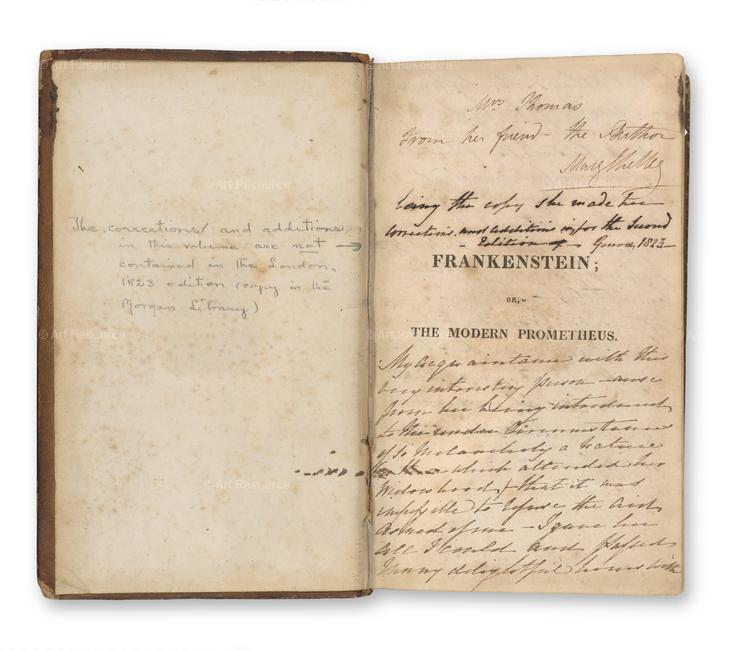 The corrections and additions
in this volume are not →
contained in the London,
1823 edition (copy in the
Morgan Library)
Mrs Thomas
From her friend - the Author
Mary Shelley
being the copy she made her
corrections and additions in, for the Second
- Edition of - Genoa, 1823 -
FRANKENSTEIN;
OR,
THE MODERN PROMETHEUS.
My acquaintance with this
very interesting person - arose
from her being introduced
to me under Circumstances
of so Melancholy a Nature
which attended her
Widowhood, that it was
impossible to refuse the aid
asked of me - I gave her
all I could and passed
many delightful hours with
© Art Resource
© Art Resource
© Art Resource
© Art Resource
© Art Resource
© Art Resource
© Art Resource
© Art Resource